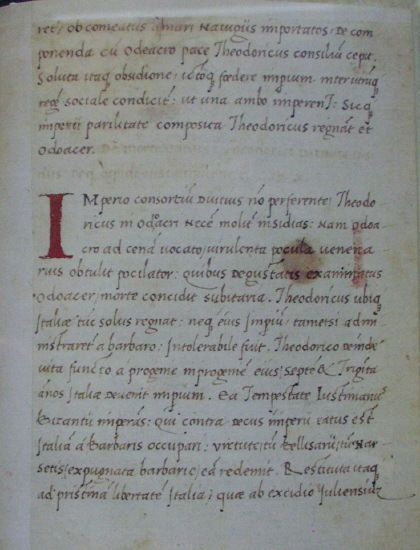 ret, ob comeatus amari Nauigiis importatos, De com
ponenda cū Odeacro pace Theodoricus consiliū cepit.
Soluta itaq obsidione, ictoq foedere impium inter utrūq
regē sociale condicit: ut una ambo imperent: Sicq
imperii parilitate composita Theodoricus regnat et
Odoacer.
IMperio consortiū Diutius nō perferente, Theodo
ricus in Odoacri Necē molit insidias: Nam Odoa
cro ad cenā uocato, uirulenta pocula venena
rius obtulit pocilator: quibus Degustatis exanimatus
Odoacer, morte concidit subitaria. Theodoricus ubiq
Italiae tūc solus regnat: neq eius Impiū, tametsi admi
nistraret a barbaro: Intolerabile fuit. Theodorico deinde
uita functo a progenie in progeniē eius, septē & Triginta
anos Italiae devenit impium. Ea Tempestate Iustinianus
Bizantii imperās: qui contra decus imperii ratus est
Italiā a Barbaris occupari: virtute, tū Bellisarii, tū Nar
setis, expugnata barbarie, eā redemit. Restituta itaq
ad pristinā libertatē Italia, quae ab excidio Juliensiū